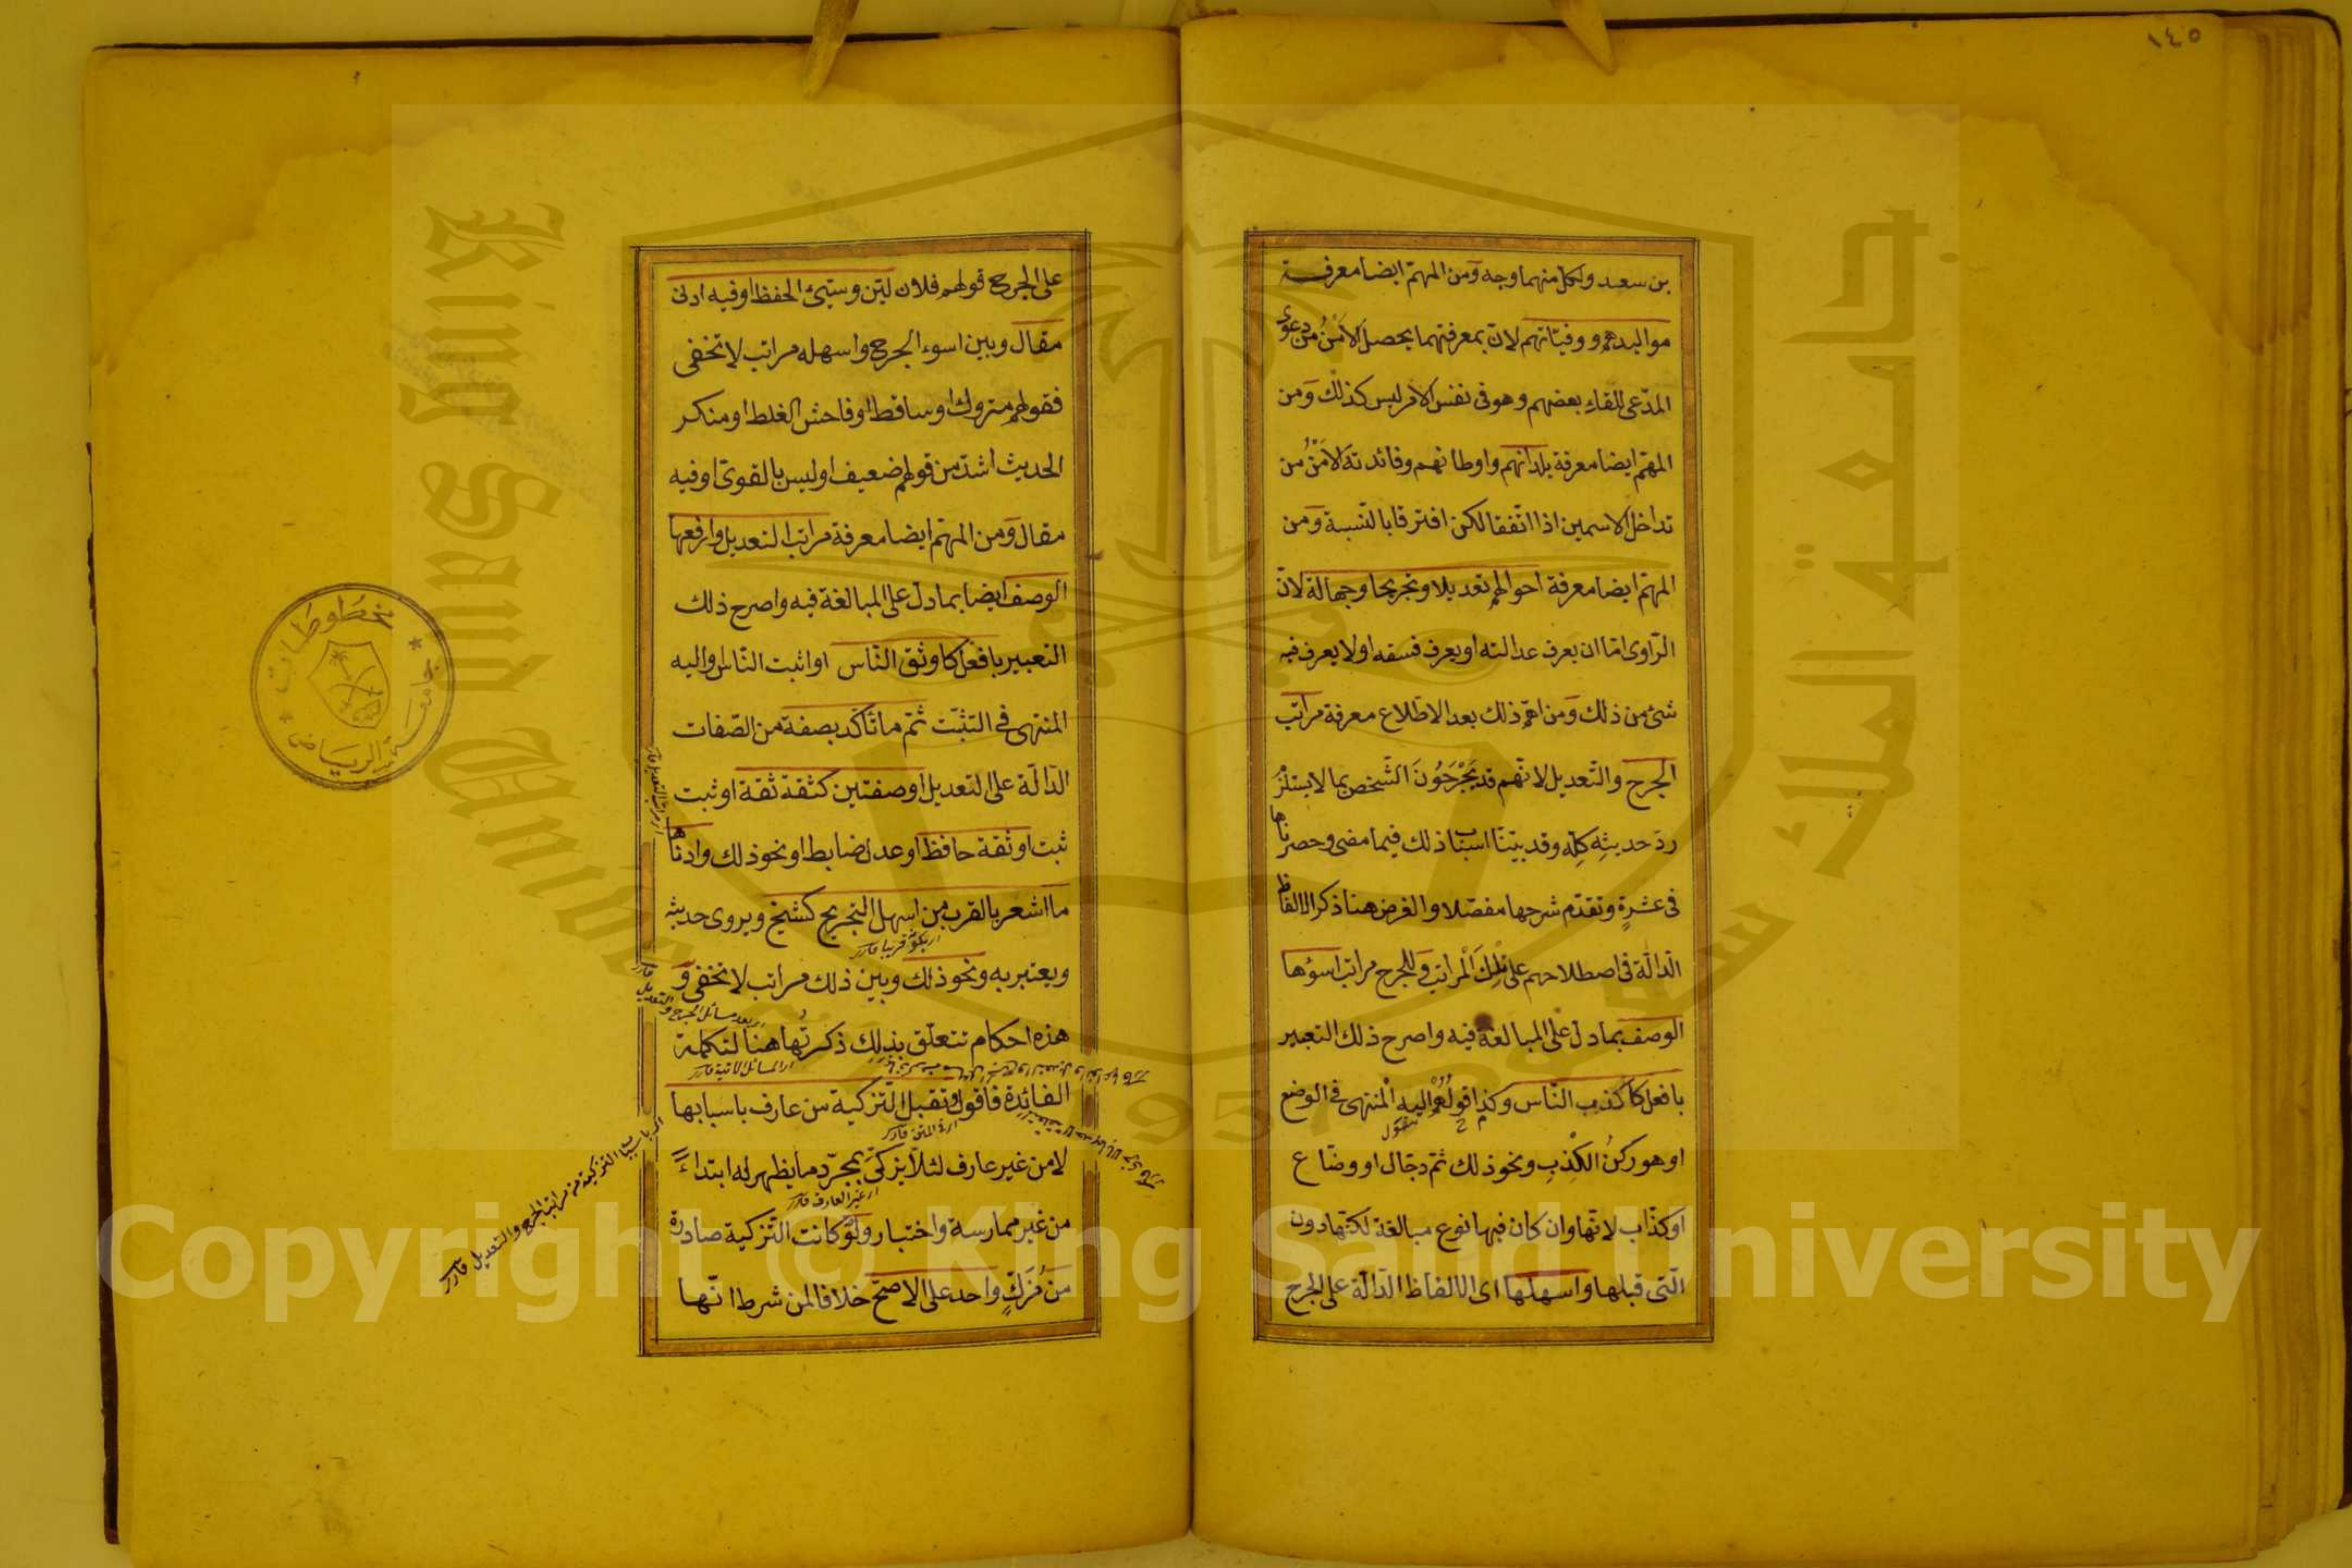 ١٤٥
بن سعيد ولكل منهما وجه ومن المهمّ ايضا معرفة
مواليدهم ووفيّاتهم لانّ بمعرفتهما يحصل الاَمْنُ من دعوى
المدّعى للقاء بعضهم وهو فى نفس الامر ليس كذلك وَمن
المهمّ ايضا معرفة بلدانهم واوطانهم وفائدته الاَمْنُ من
تداخل الاسمين اذا اتّفقا لكن افترقا بالنّسبة وَمن
المهمّ ايضا معرفة احوالهم تعديلا وتجريحا وجهالة لانّ
الرّاوى امّا ان يعرف عدالته او يعرف فسقه او لا يعرف فيه
شئ من ذلك وَمن اهمّ ذلك بعد الاطّلاع معرفة مراتب
الجرح والتّعديل لانّهم قد يَجْرَحُونَ الشّخص بما لا يستلزم
ردّ حديثِه كلِّه وقد بيّنّا اسباب ذلك فيما مضى وحصرناها
فى عشرةٍ وتقدّم شرحها مفصّلا والغرض هنا ذكر الالفاظ
الدّالّة فى اصطلاحهم على تِلْكَ الْمراتب وَللجرح مراتب اسوؤها
الوصف بما دلّ على المبالغة فيه واصرح ذلك التعبير
بافعل كاكذب النّاس وكذا قولُهُمْ اليه الْمنتهى فى الوضع
او هو ركنُ الكْذبِ ونحو ذلك ثمّ دجّال او وضّاع
او كذّاب لانّها وان كان فيها نوع مبالغة لكنّها دون
الّتى قبلها واسهلها اى الالفاظ الدّالّة على الجرح
على الجرح قولهم فلان ليّن وسيّئ الحفظ او فيه ادنى
مقال وبين اسوء الجرح واسهله مراتب لا تخفى
فقولهم متروك او ساقط او فاحش الغلط او منكر
الحديث اشدّ من قولهم ضعيف او ليس بالقوىّ او فيه
مقال وَمن المهمّ ايضا معرفة مراتب التعديل وارفعها
الوصف ايضا بما دلّ على المبالغة فيه واصرح ذلك
التعبير بافعل كاوثق النّاس او اثبت النّاس واليه
المنتهى فى التثبّت ثمّ ما تأكّد بصفة من الصّفات
الدّالّة على التعديل او صفتين كثقة ثقة او ثبت
ثبت او ثقة حافظ او عدل ضابط او نحو ذلك وادناها
ما اشعر بالقرب من اسهل التجريح كشيخ ويروى حديثه
ويعتبر به ونحو ذلك وبين ذلك مراتب لا تخفى وَ
هذه احكام تتعلّق بذلك ذكرتُها هنا لتكملة
الفائدة فاقول وتقبل التّزكية من عارف باسبابها
لا من غير عارف لئلّا يزكّى بمجرّد ما يظهر له ابتداءً
من غير ممارسة واختبار ولَوْ كانت التّزكية صادرة
مَن مُزَكٍّ واحد على الاصحّ خلافا لمن شرط انّها
مخطوطات
جامعة الرياض
جامعة الملك سعود
King Saud University
1957
Copyright © King Saud University